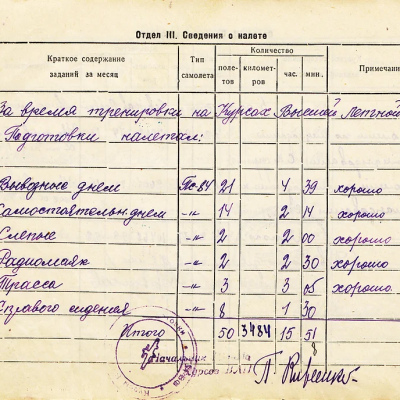 Отдел III. Сведения о налете
Краткое содержание заданий за месяц | Тип самолета | Количество | Примечани
полетов | километров | час. | мин.
За время тренировки на Курсах Высшей Летной
Подготовки налетал:
Вывозные днем | Пс-84 | 21 | 4 | 39 | хорошо
Самостоятельн. днем | -"- | 14 | 2 | 14 | хорошо
Слепые | -"- | 2 | 2 | 00 | хорошо
Радиомаяк | -"- | 2 | 2 | 30 | хорошо
Трасса | -"- | 3 | 3 | 05 | хорошо
С правого сидения | 8 | 1 | 30
Итого | 50 | 3484 | 15 | 51
8
Начальник
Курсов ВЛП